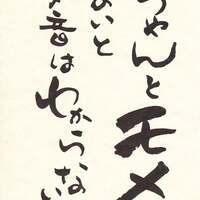 ちゃんとモメ
ないと
音はわからない